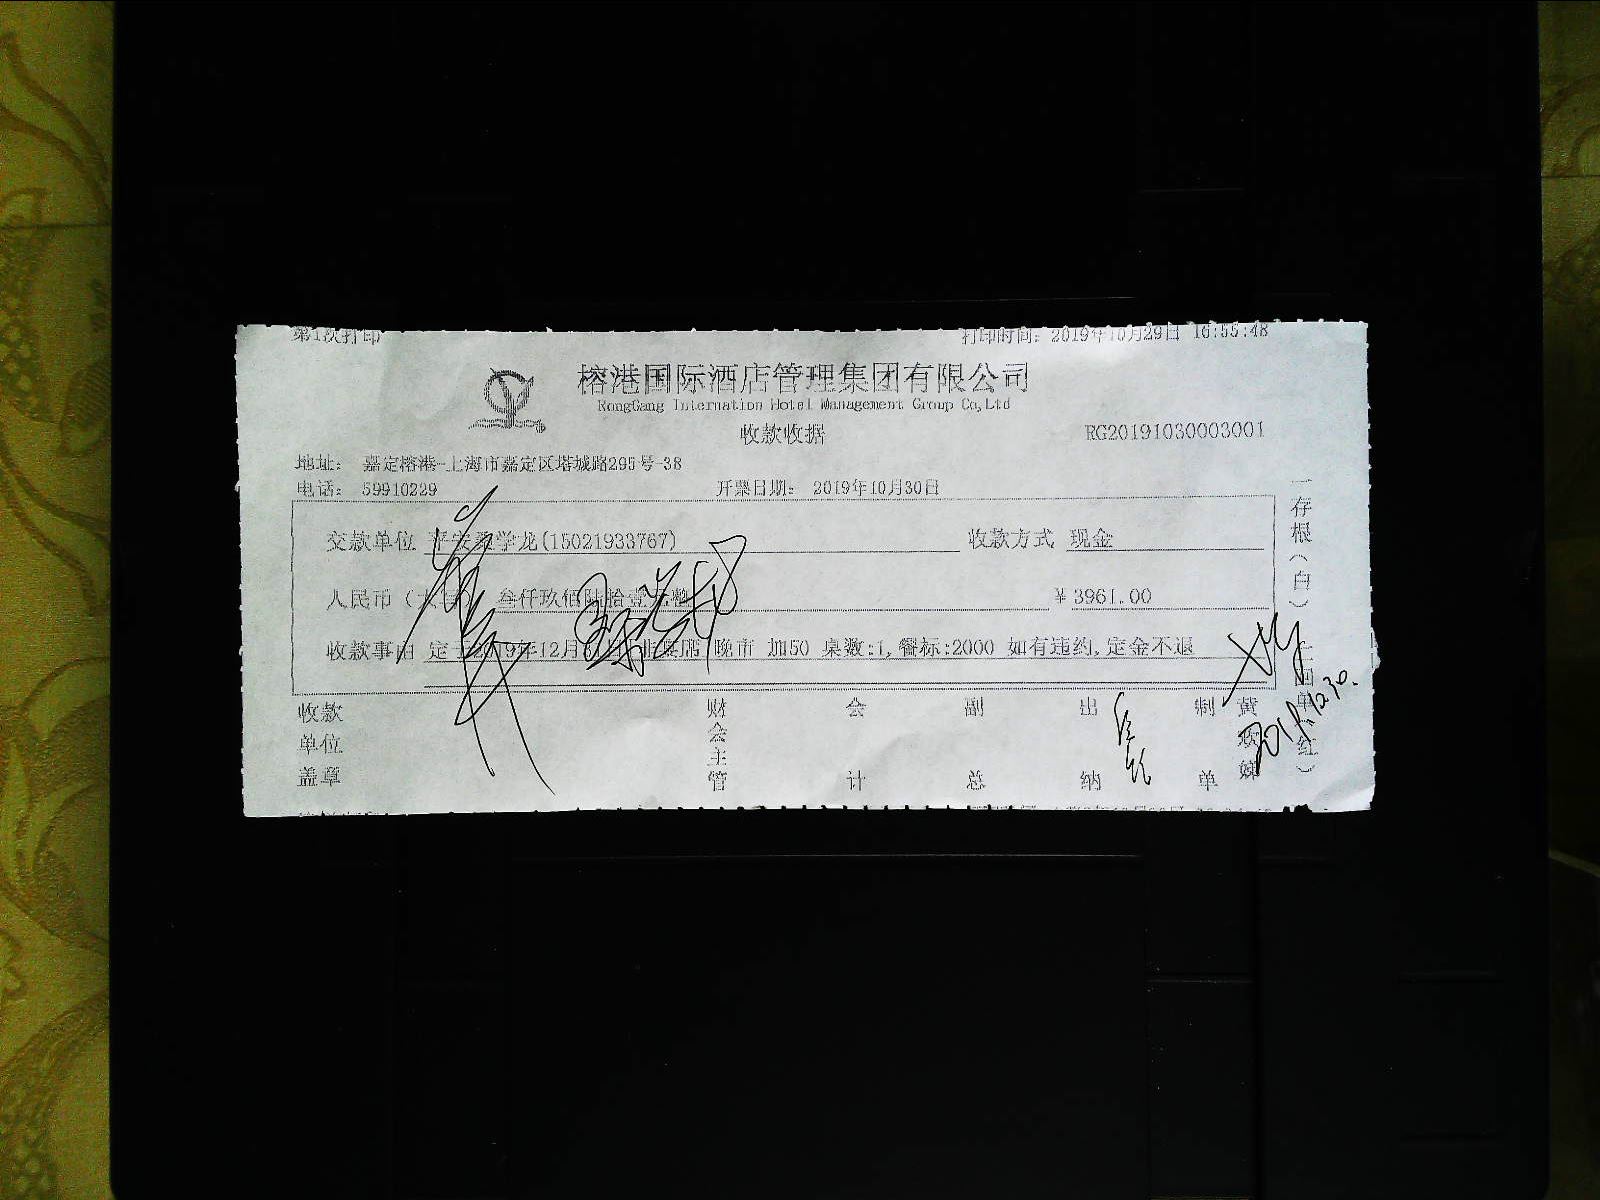 第1次打印 打印时间: 2019年10月29日 16:55:48
榕港国际酒店管理集团有限公司
RongGang Internation Hotel Management Group Co,Ltd
收款收据 RG20191030003001
地址: 嘉定榕港-上海市嘉定区塔城路295号-38
电话: 59910229 开票日期: 2019年10月30日
交款单位 平安 学龙(15021933767) 收款方式 现金
人民币(大写) 叁仟玖佰陆拾壹元整 ¥3961.00
收款事由 定于2019年12月 日 非宴席 晚市 加50 桌数:1,餐标:2000 如有违约,定金不退
收款单位盖章 财会主管 会计 副总 出纳 制单 黄 娣
一存根(白) 二回单(红)